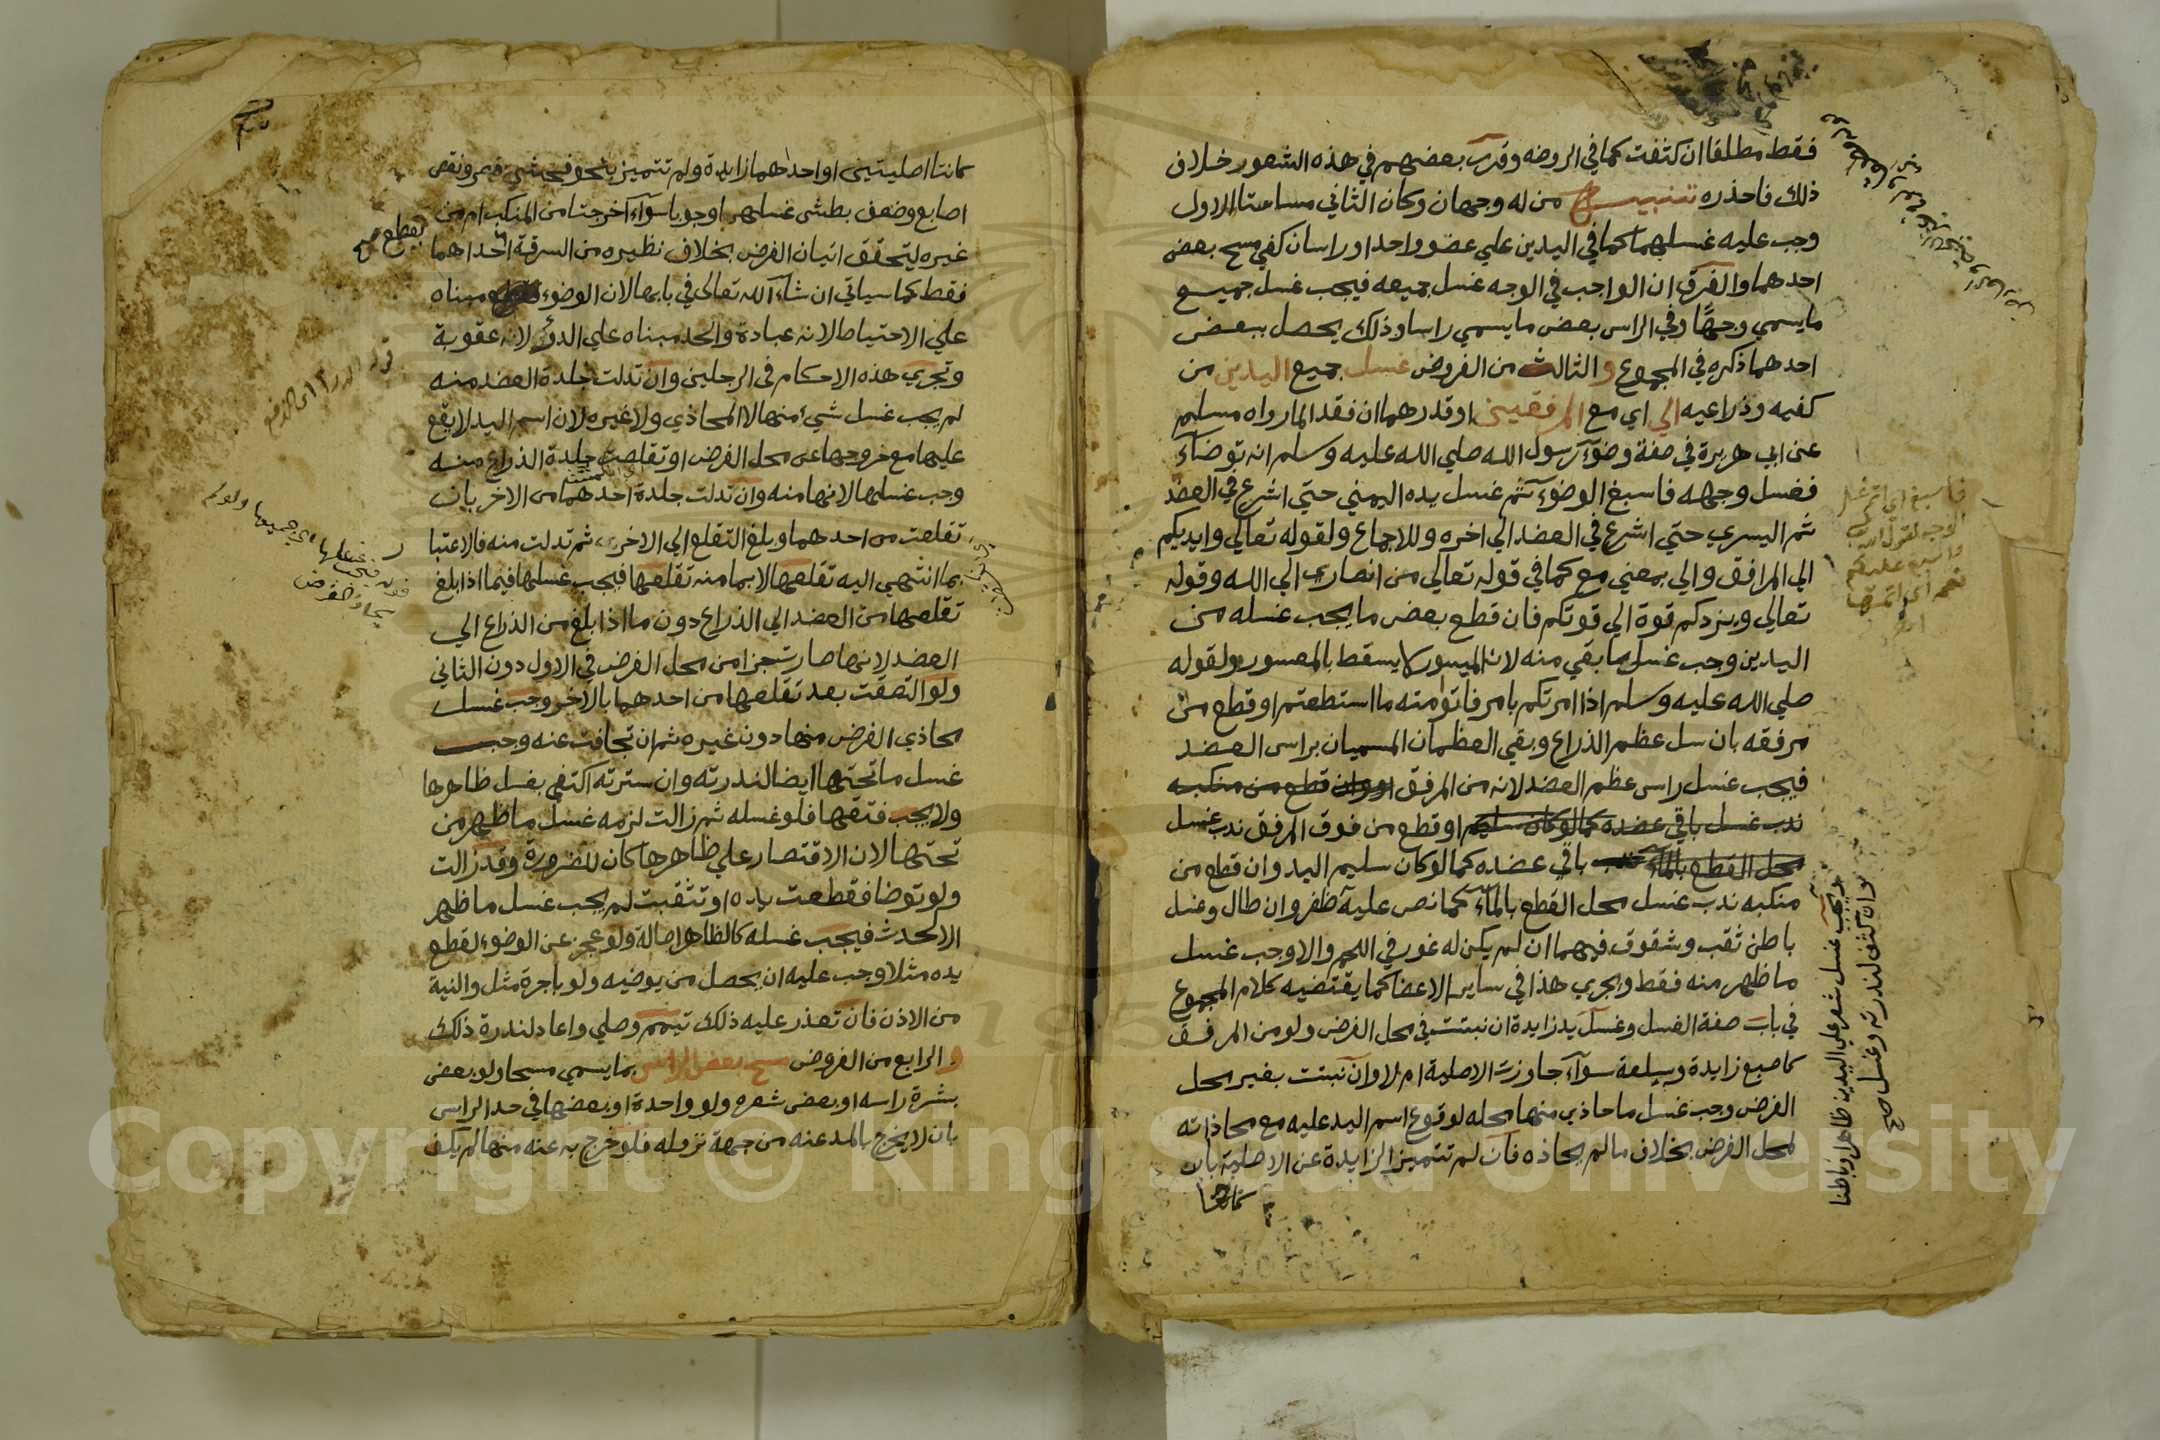 فقط مطلقا ان كثفت كما في الروضه وقدب بعضهم في هذه الشعور خلاف
ذلك فاحذره تنبيه من له وجهان وكان الثاني مسامتا للاول
وجب عليه غسلهما كما في اليدين علي عضو واحد او راسان كفي مسح بعض
احدهما والفرق ان الواجب في الوجه غسل جميعه فيجب غسل جميع
ما يسمي وجها وفي الراس بعض ما يسمي راسا وذلك يحصل ببعض
احدهما ذكره في المجموع والثالث من الفروض غسل جميع اليدين من
كفيه وذراعيه الي اي مع المرفقين او قدرهما ان فقدا لما رواه مسلم
عن ابي هريرة في صفة وضوء رسول الله صلي الله عليه وسلم انه توضاء
فغسل وجهه فاسبغ الوضوء ثم غسل يده اليمني حتي اشرع في العضد
ثم اليسري حتي اشرع في العضد الي اخره وللاجماع ولقوله تعالي وايديكم
الي المرافق والي بمعني مع كما في قوله تعالي من انصاري الي الله وقوله
تعالي ويزدكم قوة الي قوتكم فان قطع بعض ما يجب غسله من
اليدين وجب غسل ما بقي منه لان الميسور لا يسقط بالمعسور ولقوله
صلي الله عليه وسلم اذا امرتكم بامر فاتوا منه ما استطعتم او قطع من
مرفقه بان سل عظم الذراع وبقي العظمان المسميان براس العضد
فيجب غسل راس عظم العضد لانه من المرفق او وان قطع من منكبه
ندب غسل باقي عضده كما لو كان سليم او قطع من فوق المرفق ندب غسل
محل القطع بالماء باقي عضده كما لو كان سليم اليد وان قطع من
منكبه ندب غسل محل القطع بالماء كما نص عليه ظفر وان طال وغسل
باطن ثقب وشقوق فيهما ان لم يكن له غور في اللحم والا وجب غسل
ما ظهر منه فقط ويجري هذا في ساير الاعضا كما يقتضيه كلام المجموع
في باب صفة الغسل وغسل يد زايدة ان نبتت في محل الفرض ولو من المرفق
كاصبع زايدة وسلعة سوآء جاوزت الاصلية ام لا وان نبتت بغير محل
الفرض وجب غسل ما حاذي منها محله لوقوع اسم اليد عليه مع محاذاته
لمحل الفرض بخلاف ما لم يحاذه فان لم تتميز الزايدة عن الاصلية بان
كانتا
وتجب غسل شعر علي اليدين ظاهرا وباطنا
وان كثف لندرته وغسل صح
فاسبغ اي اتم غسل
الوجه لقوله
واسبغ عليكم
نعمه اي اتمها
كانتا اصليتين او احداهما زايدة ولم تتميز بنحو فحش قصر ونقص
اصابع وضعف بطش غسلهما وجوبا سوآء آخرجتا من المنكب ام من
غيره ليتحقق اتيان الفرض بخلاف نظيره من السرقة احداهما
تقطع
فقط كما سياتي ان شاء الله تعالي في بابها لان الوضوء مبناه
علي الاحتياط لانه عبادة والحد مبناه علي الدرء لانه عقوبة
وتجري هذه الاحكام في الرجلين وان تدلت جلدة العضد منه
لم يجب غسل شيء منها لا المحاذي ولا غيره لان اسم اليد لا يقع
عليها مع خروجها عن محل الفرض او تقلصت جلدة الذراع منه
وجب غسلها لانها منه وان تدلت جلدة احدهما من الاخر بان
تقلعت من احدهما وبلغ التقلع الي الاخر ثم تدلت منه فالاعتبا
بما انتهي اليه تقلعها لا بما منه تقلعها فيجب غسلها فيما اذا بلغ
تقلعها من العضد الي الذراع دون ما اذا بلغ من الذراع الي
العضد لانها صارت جزا من محل الفرض في الاول دون الثاني
ولو التصقت بعد تقلعها من احدهما بالاخر وجب غسل
محاذي الفرض منها دون غيره ثم ان تجافت عنه وجب
غسل ما تحتها ايضا لندرته وان سترته اكتفي بغسل ظاهرها
ولا يجب فتقها فلو غسله ثم زالت لزمه غسل ما ظهر من
تحتها لان الاقتصار علي ظاهرها كان للضرورة وقد زالت
ولو توضا فقطعت يده او تثقبت لم يجب غسل ما ظهر
الا لحدث فيجب غسله كالظاهر اصالة ولو عجز عن الوضوء لقطع
يده مثلا وجب عليه ان يحصل من يوضيه ولو باجرة مثل والنية
من الاذن فان تعذر عليه ذلك تيمم وصلي واعاد لندرة ذلك
و الرابع من الفروض مسح بعض الراس بما يسمي مسحا ولو بعض
بشرة راسه او بعض شعره ولو واحدة او بعضها في حد الراس
بان لا يخرج بالمد عنه من جهة نزوله فلو خرج به عنه منها لم يكف